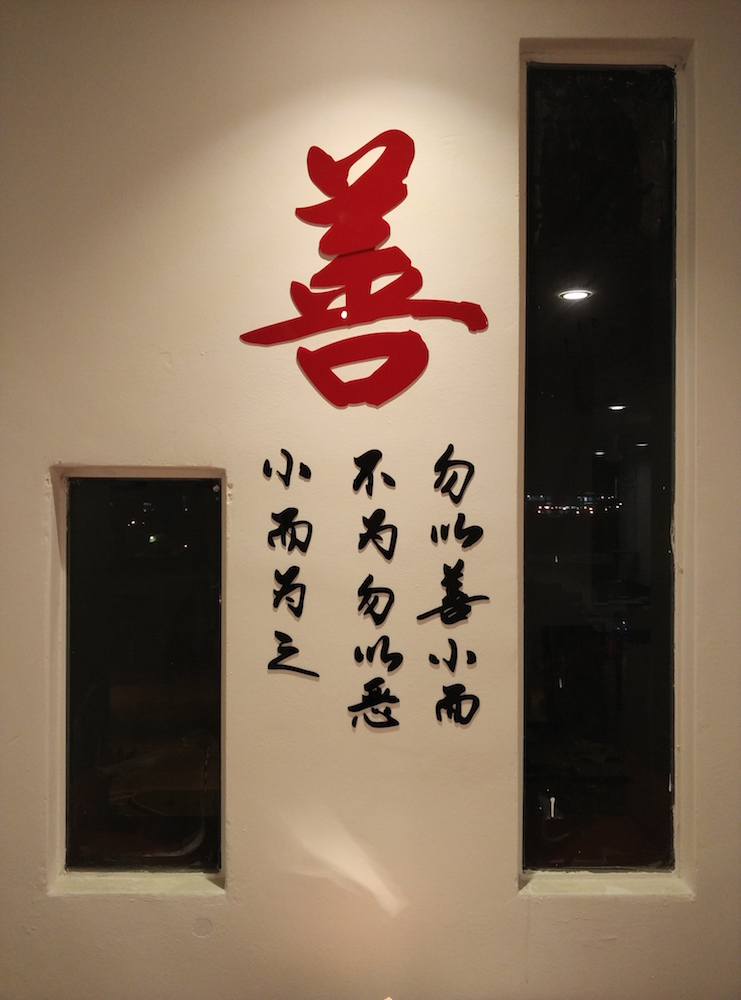 善
勿以善小而
不为勿以恶
小而为之